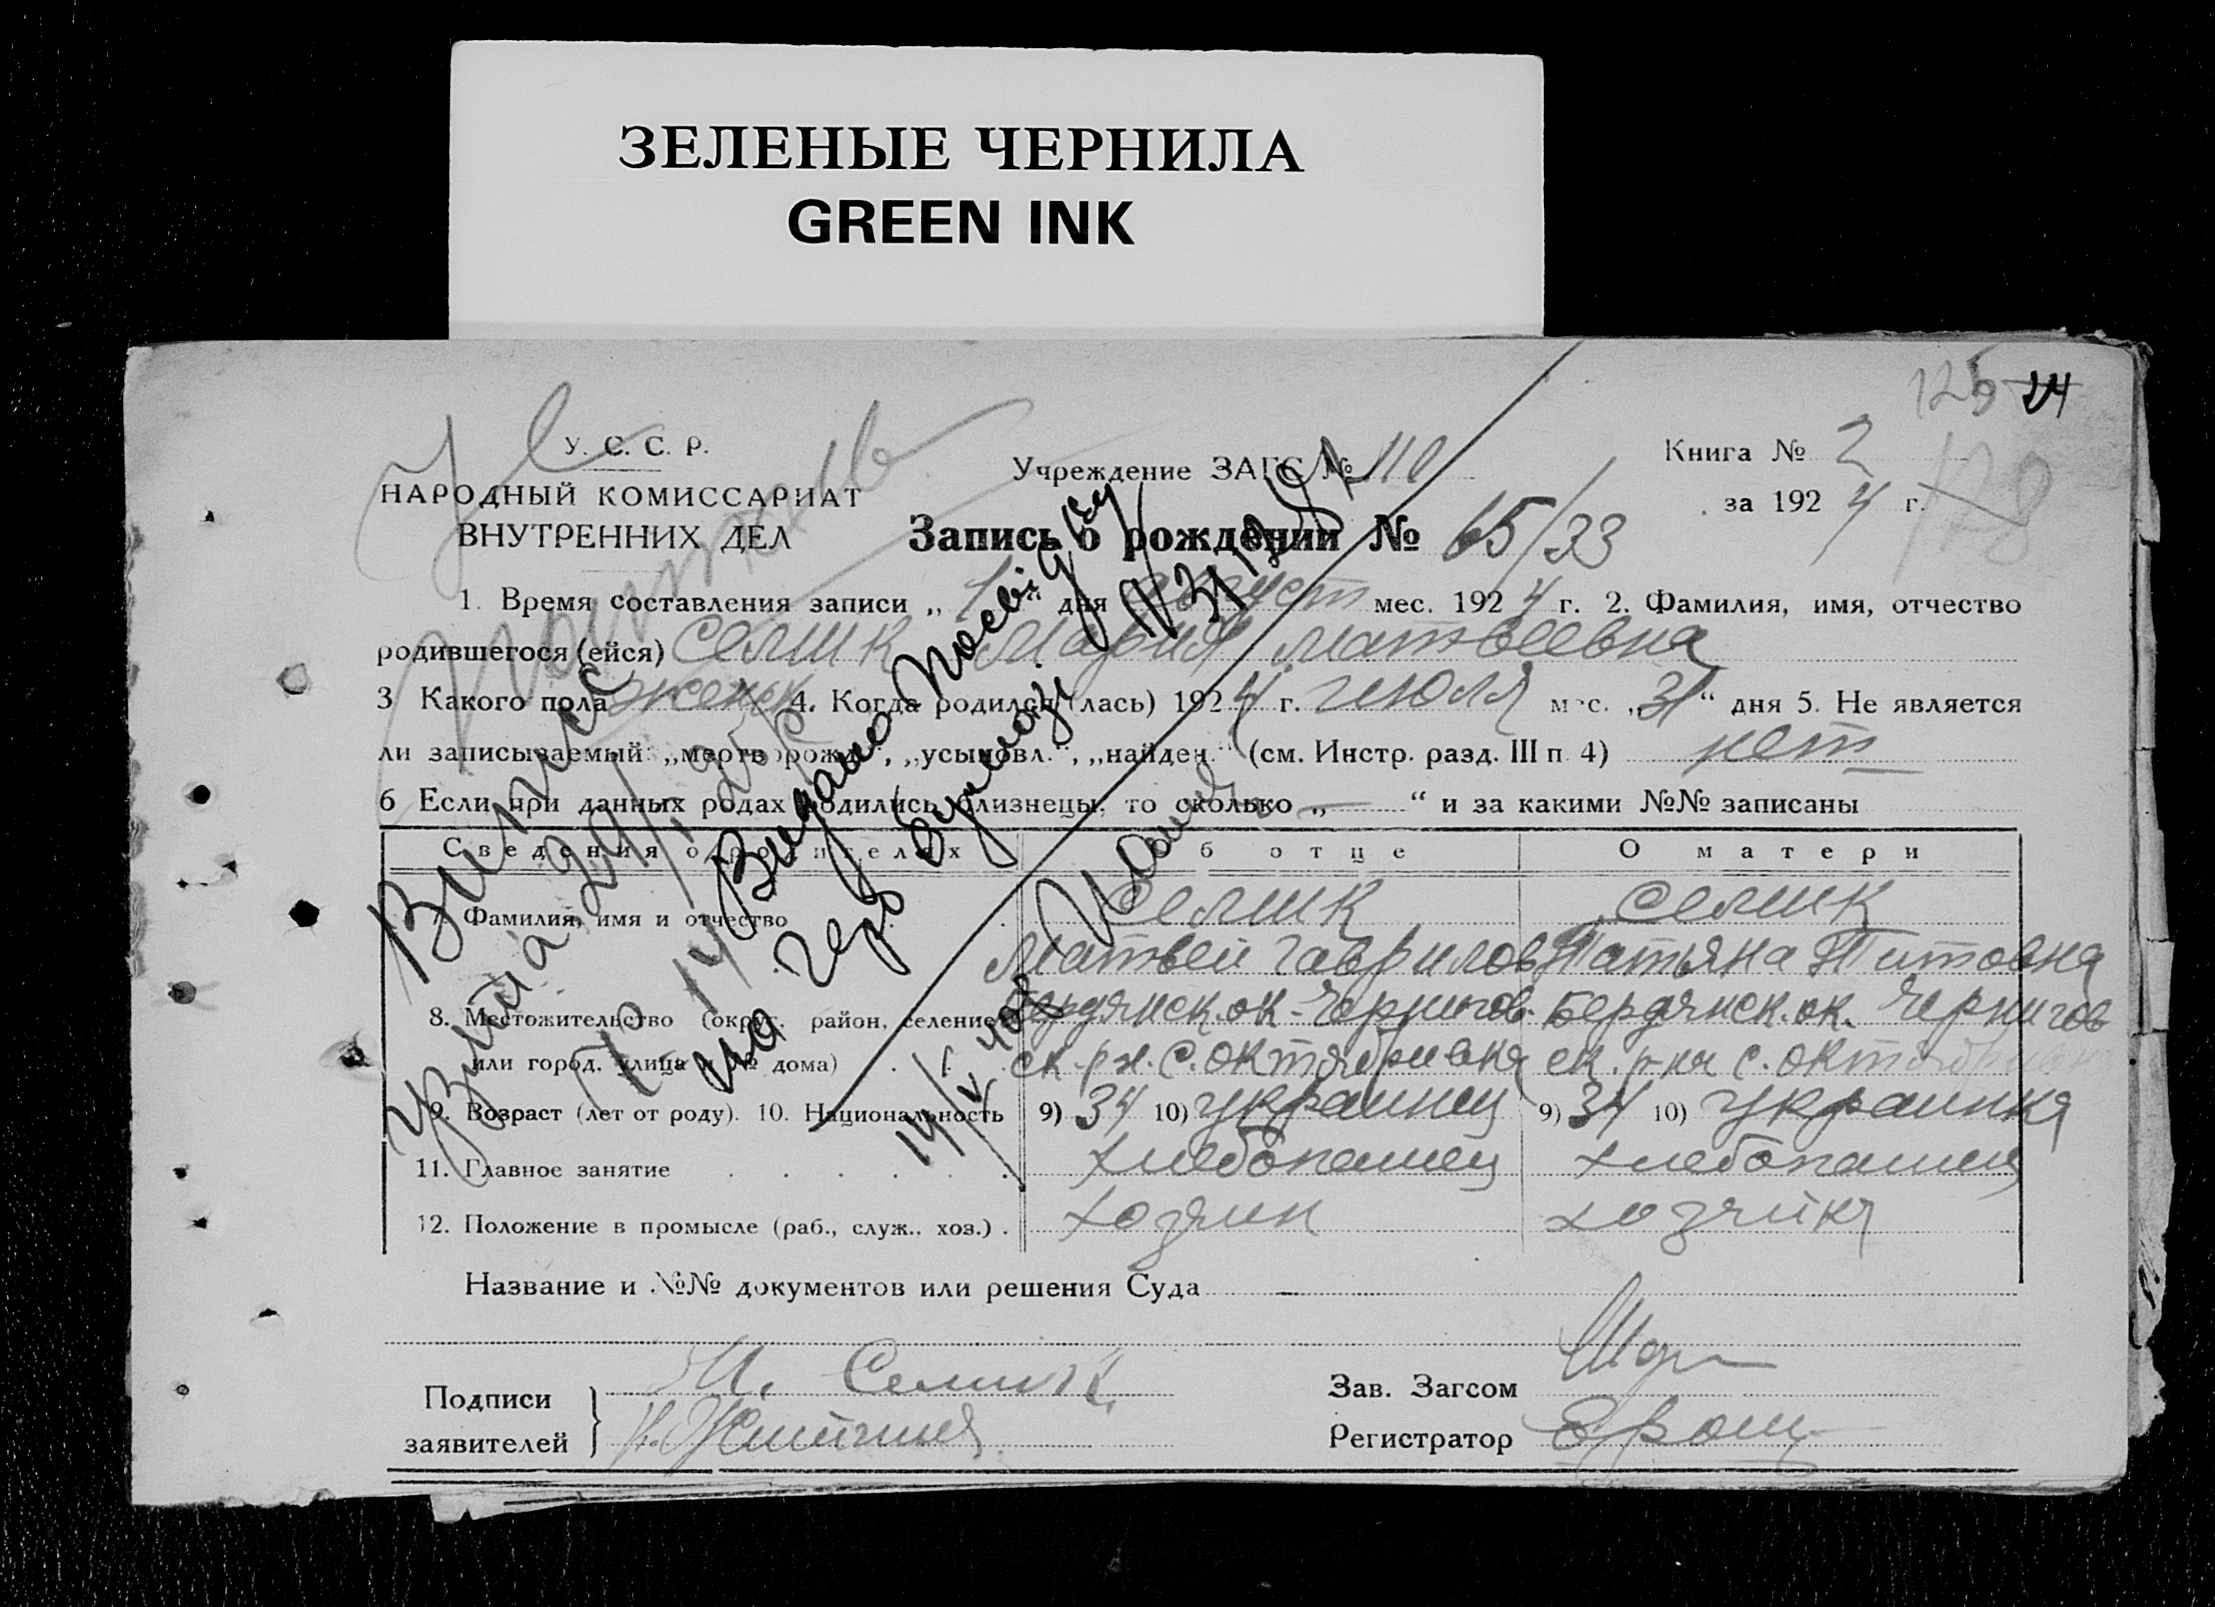 ЗЕЛЕНЫЕ ЧЕРНИЛА
GREEN INK
24
У. С. С. Р.
НАРОДНЫЙ КОМИССАРИАТ
ВНУТРЕННИХ ДЕЛ
Учреждение ЗАГС № 110
Книга № 2
за 1924 г.
Запись о рождении № 65/33
1. Время составления записи „1“ дня август мес. 1924 г. 2. Фамилия, имя, отчество
родившегося (ейся) Селик Мария Матвеевна
3 Какого пола женск. 4. Когда родился (лась) 1924 г. июля мес. „31“ дня 5. Не является
ли записываемый „мертворожд.“, „усыновл.“, „найден.“ (см. Инстр. разд. III п. 4) нет
6 Если при данных родах родились близнецы, то сколько „—“ и за какими №№ записаны
Сведения о родителях Об отце О матери
7. Фамилия, имя и отчество Селик Селик
Матвей Гаврилов Татьяна Титовна
8. Местожительство (округ, район, селение Бердянск. ок. Чернигов. Бердянск. ок. Чернигов
или город, улица и № дома) ск. рн. с. Октябривка ск. р-на с. Октябривка
9. Возраст (лет от роду). 10. Национальность 9) 34 10) украинец 9) 34 10) украинка
11. Главное занятие хлебопашец хлебопашец
12. Положение в промысле (раб., служ., хоз.) хозяин хозяйка
Название и №№ документов или решения Суда —
Подписи заявителей М. Селик
Зав. Загсом
Регистратор
Видано посвідку
на